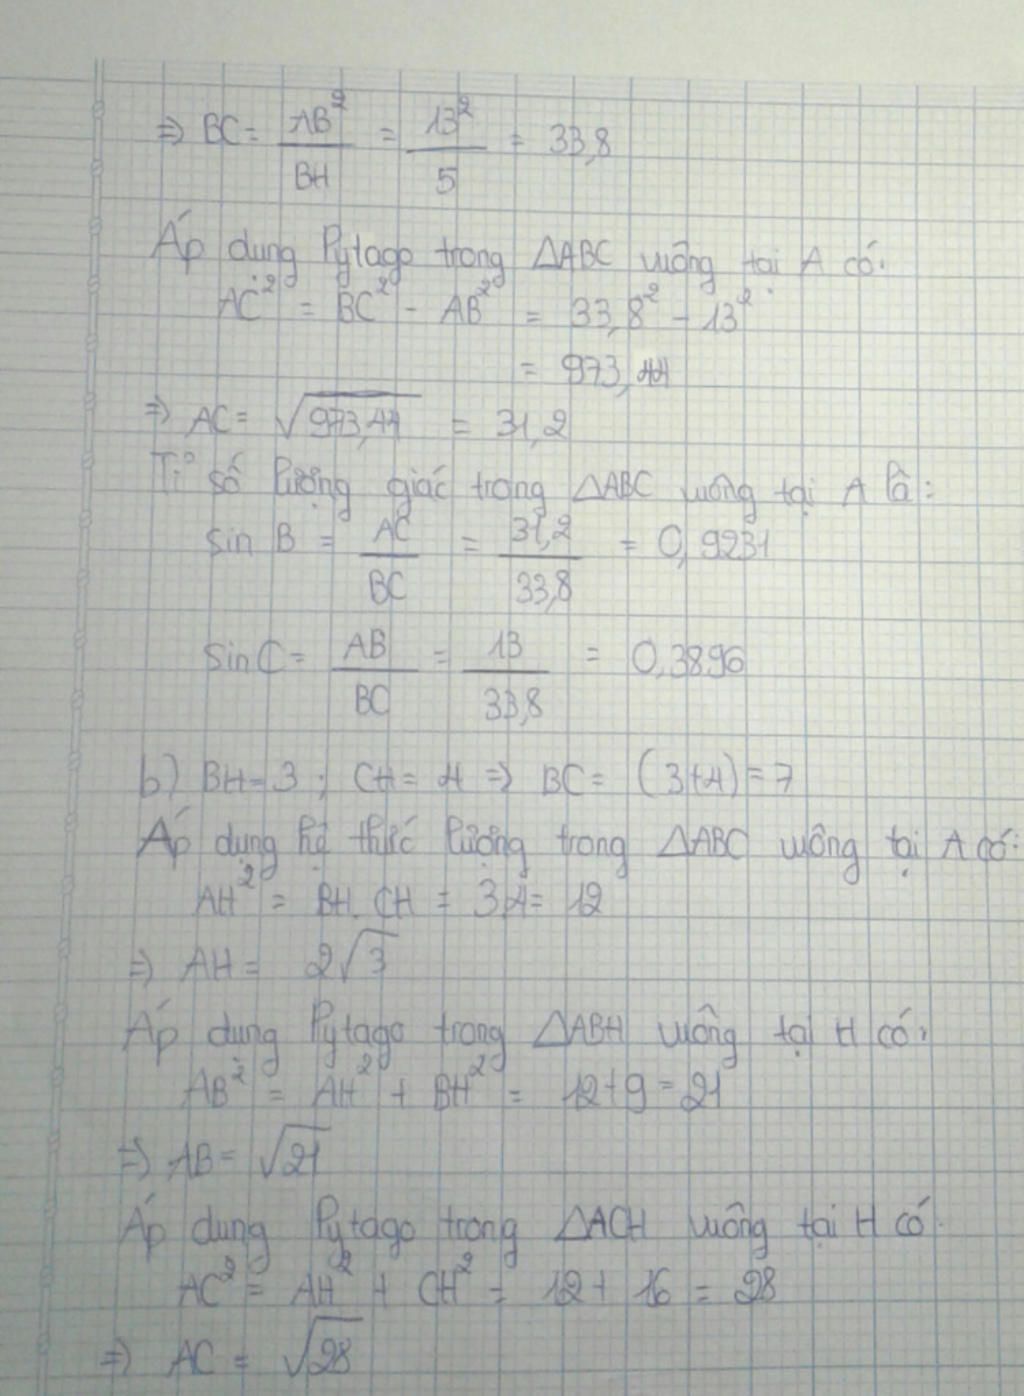 ⇒ BC = AB² / BH = 13² / 5 = 33,8
Áp dụng Pytago trong ΔABC vuông tại A có:
AC² = BC² - AB² = 33,8² - 13²
= 973,44
⇒ AC = √973,44 = 31,2
Tỉ số lượng giác trong ΔABC vuông tại A là:
sin B = AC / BC = 31,2 / 33,8 = 0,9231
sin C = AB / BC = 13 / 33,8 = 0,3896
b) BH = 3 ; CH = 4 ⇒ BC = (3+4) = 7
Áp dụng hệ thức lượng trong ΔABC vuông tại A có:
AH² = BH. CH = 3.4 = 12
⇒ AH = 2√3
Áp dụng Pytago trong ΔABH vuông tại H có:
AB² = AH² + BH² = 12+9 = 21
⇒ AB = √21
Áp dụng Pytago trong ΔACH vuông tại H có:
AC² = AH² + CH² = 12 + 16 = 28
⇒ AC = √28